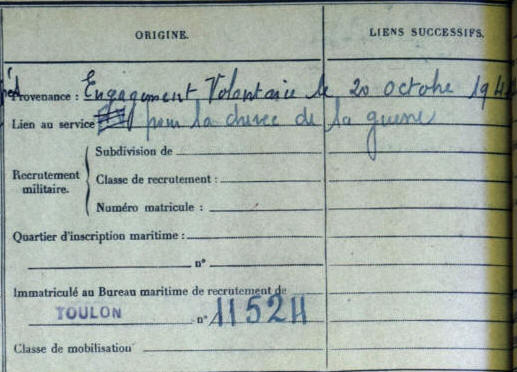 ORIGINE.
LIENS SUCCESSIFS.
Provenance : Engagement Volontaire le 20 octobre 194
Lien au service pour la durée de la guerre
Recrutement militaire.
Subdivision de
Classe de recrutement :
Numéro matricule :
Quartier d'inscription maritime :
n°
Immatriculé au Bureau maritime de recrutement de
TOULON n° 11524
Classe de mobilisation